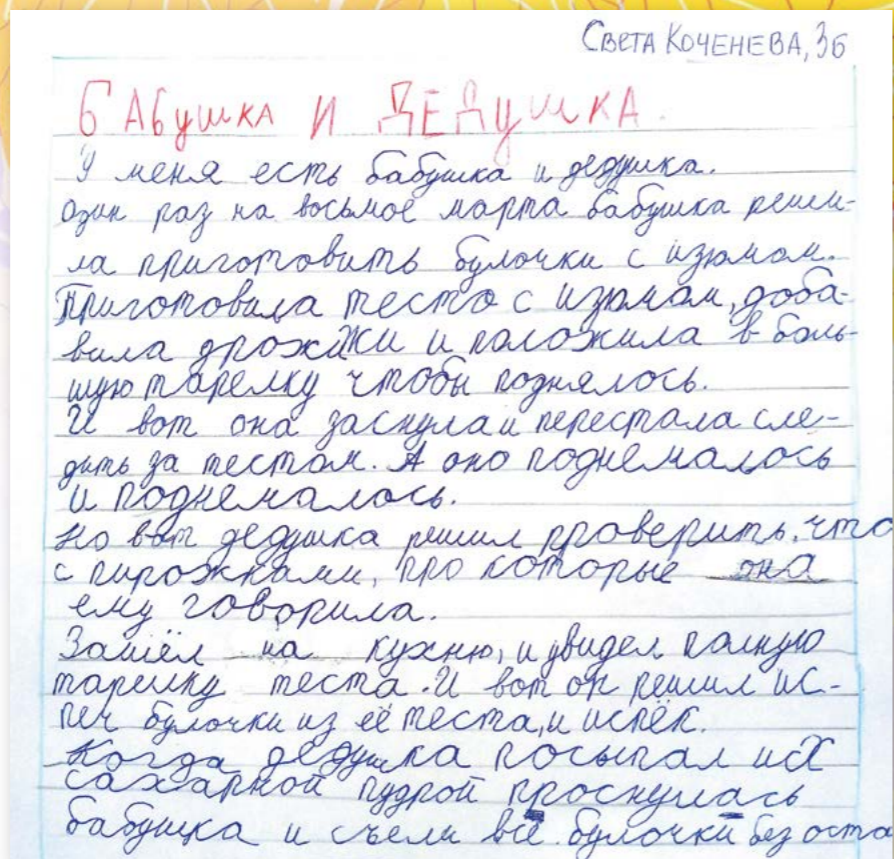 СВЕТА КОЧЕНЕВА, 3б
БАБУШКА И ДЕДУШКА.
У меня есть бабушка и дедушка.
Один раз на восьмое марта бабушка реши-
ла приготовить булочки с изюмом.
Приготовила тесто с изюмом, доба-
вила дрожжи и положила в боль-
шую тарелку чтобы поднялось.
И вот она заснула и перестала сле-
дить за тестом. А оно поднемалось
и поднемалось.
Но вот дедушка решил проверить, что
с пирожками, про которые она
ему говорила.
Зашёл на кухню, и увидел полную
тарелку теста. И вот он решил ис-
печ булочки из её теста, и испёк.
Когда дедушка посыпал их
сахарной пудрой проснулась
бабушка и съели всё булочки без оста